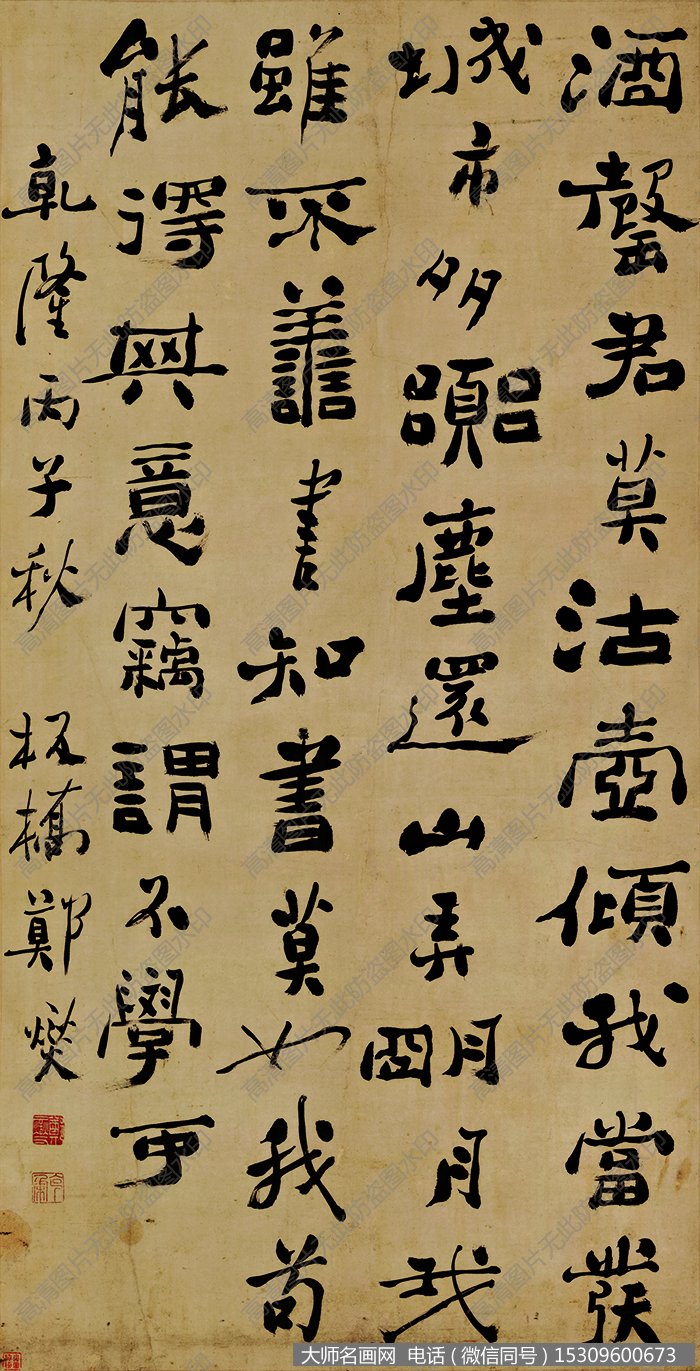 酒罄君莫沽壺傾我當發
城市多囂塵還山弄朙月我
雖不善書知書莫如我苟
能得其意竊謂不學可
乾隆丙子秋 板橋鄭燮
大师名画网 电话（微信同号）15309600673
高清图片无此防盗图水印